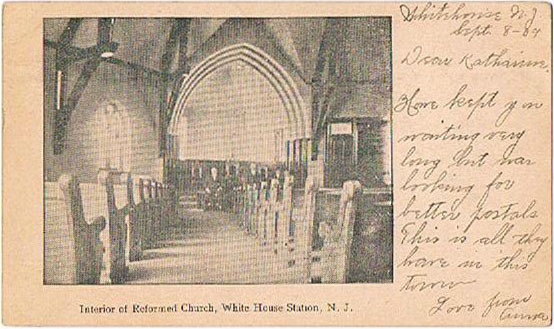 Whitehouse N J
Sept. 8-04
Dear Katharine
Have kept you
waiting very
long but was
looking for
better postals
This is all they
have in this
town
Love from
Anna
Interior of Reformed Church, White House Station, N. J.